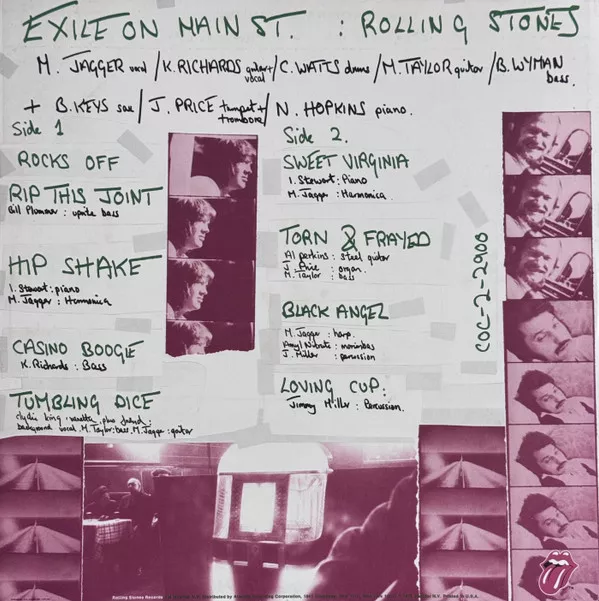 EXILE ON MAIN ST. : ROLLING STONES
M. JAGGER vocal / K. RICHARDS guitar + vocal / C. WATTS drums / M. TAYLOR guitar / B. WYMAN bass.
+ B. KEYS sax / J. PRICE trumpet + trombone / N. HOPKINS piano.
Side 1
ROCKS OFF
RIP THIS JOINT
Bill Plummer : uprite bass
HIP SHAKE
I. Stewart : piano
M. Jagger : Harmonica
CASINO BOOGIE
K. Richards : Bass
TUMBLING DICE
clydie king : vanetta, plus friend :
background vocal. M. Taylor : bass. M. Jagger : guitar
Side 2.
SWEET VIRGINIA
I. Stewart : Piano
M. Jagger : Harmonica.
TORN & FRAYED
Al perkins : steel guitar
J. Price : organ.
M. Taylor : bass
BLACK ANGEL
M. Jagger : harp.
Amyl Nitrate : marimbas
J. Miller : percussion
LOVING CUP.
Jimmy Miller : Percussion.
COC-2-2900
Rolling Stones Records